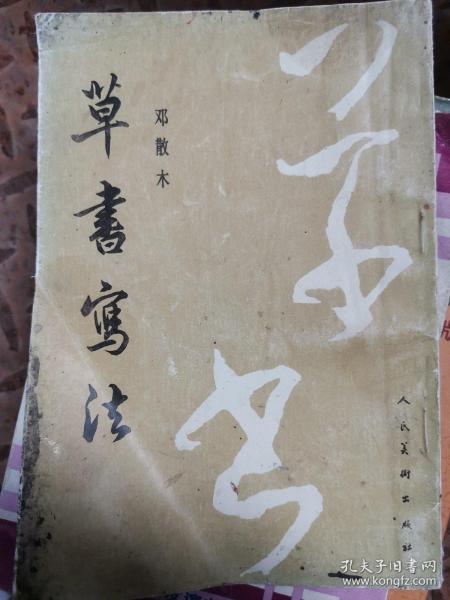 草书
草書寫法
邓散木
人民美術出版社
版
孔夫子旧书网
www.kongfz.com